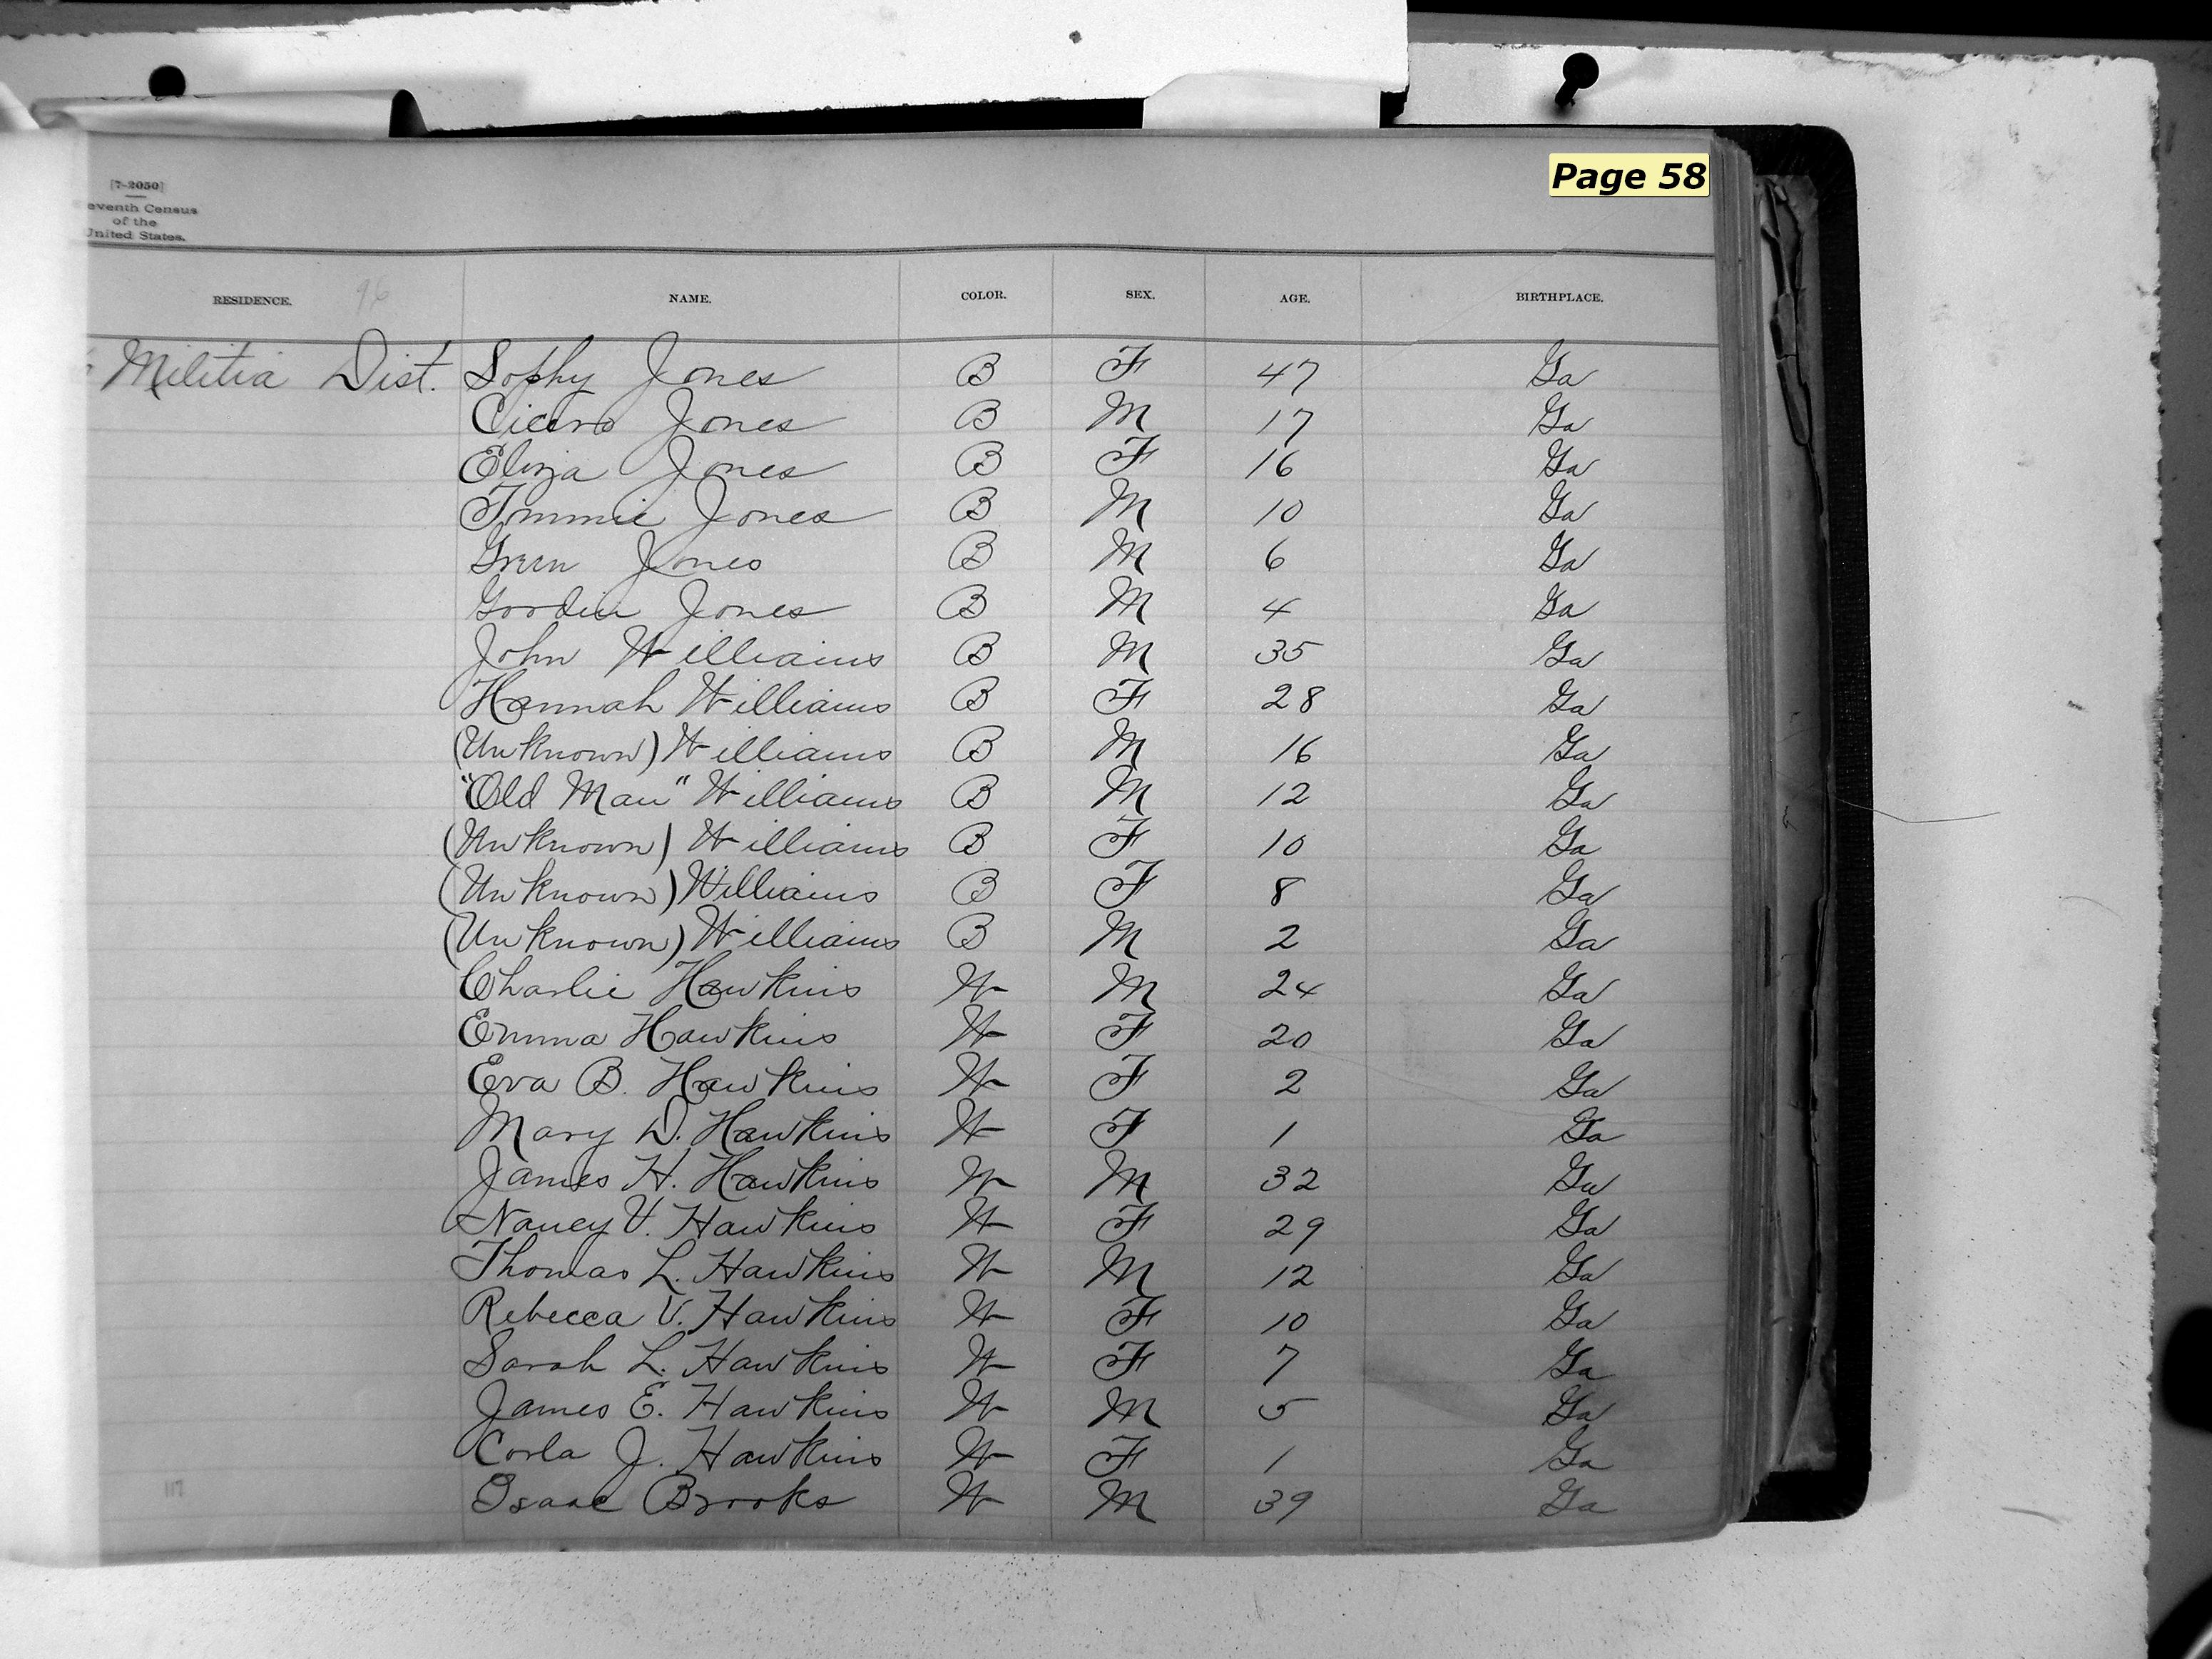 Page 58
[7-2050]
eventh Census
of the
United States.
RESIDENCE. 96 NAME. COLOR. SEX. AGE. BIRTHPLACE.
Militia Dist. Sophy Jones B F 47 Ga
Cicero Jones B M 17 Ga
Eliza Jones B F 16 Ga
Tommie Jones B M 10 Ga
Green Jones B M 6 Ga
Gordin Jones B M 4 Ga
John Williams B M 35 Ga
Hannah Williams B F 28 Ga
(Unknown) Williams B M 16 Ga
"Old Man" Williams B M 12 Ga
(Unknown) Williams B F 10 Ga
(Unknown) Williams B F 8 Ga
(Unknown) Williams B M 2 Ga
Charlie Hawkins W M 24 Ga
Emma Hawkins W F 20 Ga
Eva B. Hawkins W F 2 Ga
Mary D. Hawkins W F 1 Ga
James H. Hawkins W M 32 Ga
Nancy V. Hawkins W F 29 Ga
Thomas L. Hawkins W M 12 Ga
Rebecca V. Hawkins W F 10 Ga
Sarah L. Hawkins W F 7 Ga
James E. Hawkins W M 5 Ga
Corla J. Hawkins W F 1 Ga
117 Isaac Brooks W M 39 Ga